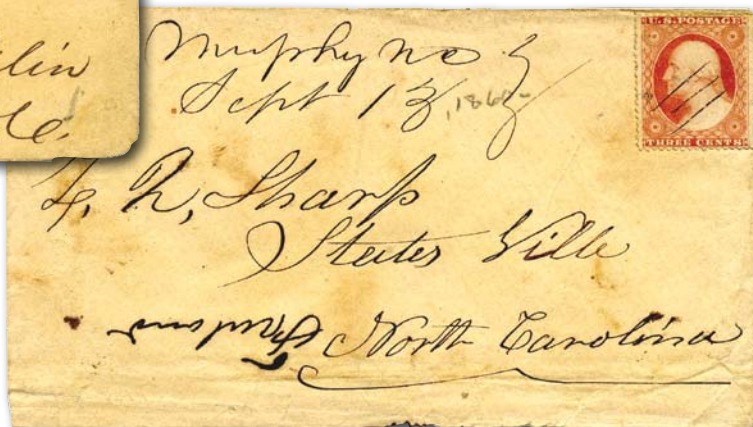 lin
Murphy NC
Sept 13, 1860
U.S. POSTAGE
THREE CENTS
R, Sharp
States Ville
North Carolina